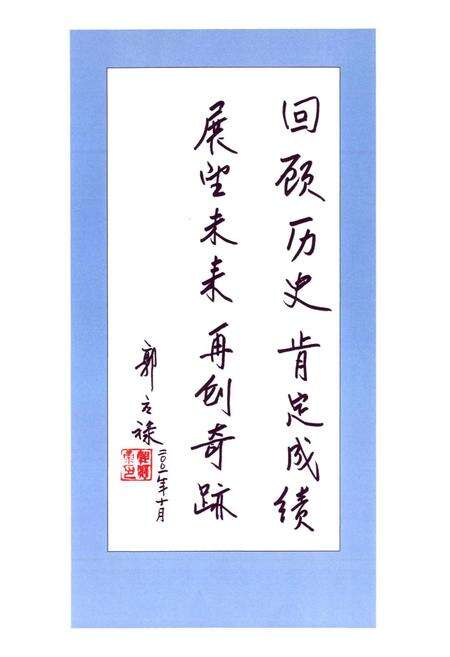 回顾历史肯定成绩
展望未来再创奇迹
郭立禄
二〇〇二年十月